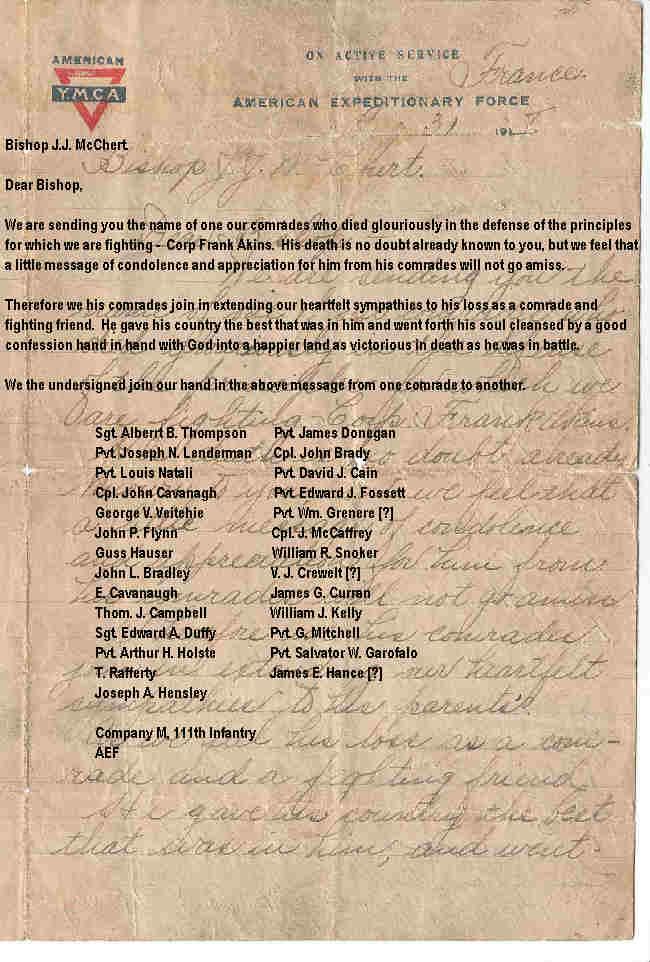 AMERICAN
Y.M.C.A
ON ACTIVE SERVICE
WITH THE
AMERICAN EXPEDITIONARY FORCE
France
31 191
Bishop J.J. McChert
Bishop J.J. McChert.
Dear Bishop,
We are sending you the name of one our comrades who died glouriously in the defense of the principles
for which we are fighting – Corp Frank Akins. His death is no doubt already known to you, but we feel that
a little message of condolence and appreciation for him from his comrades will not go amiss.
sending you the
Therefore we his comrades join in extending our heartfelt sympathies to his loss as a comrade and
fighting friend. He gave his country the best that was in him and went forth his soul cleansed by a good
confession hand in hand with God into a happier land as victorious in death as he was in battle.
We the undersigned join our hand in the above message from one comrade to another.
we
are fighting Corp. Frank Akins.
Sgt. Alberrt B. Thompson Pvt. James Donegan
Pvt. Joseph N. Lenderman Cpl. John Brady
no doubt already
Pvt. Louis Natali Pvt. David J. Cain
Cpl. John Cavanagh Pvt. Edward J. Fossett
we feel that
George V. Veitehie Pvt. Wm. Grenere [?]
John P. Flynn Cpl. J. McCaffrey
of condolence
Guss Hauser William R. Snoker
for him from
John L. Bradley V. J. Crewelt [?]
E. Cavanaugh James G. Curran
not go amiss
Thom. J. Campbell William J. Kelly
Sgt. Edward A. Duffy Pvt. G. Mitchell
his comrades
Pvt. Arthur H. Holste Pvt. Salvator W. Garofalo
T. Rafferty James E. Hance [?]
our heartfelt
Joseph A. Hensley
sympathies to his parents.
Company M, 111th Infantry
AEF
his loss as a com-
rade and a fighting friend
He gave his country the best
that was in him, and went